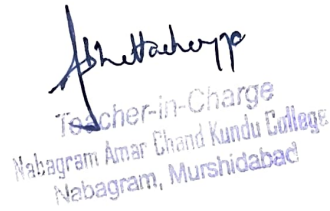 Bhattacharyya
Teacher-in-Charge
Nabagram Amar Chand Kundu College
Nabagram, Murshidabad